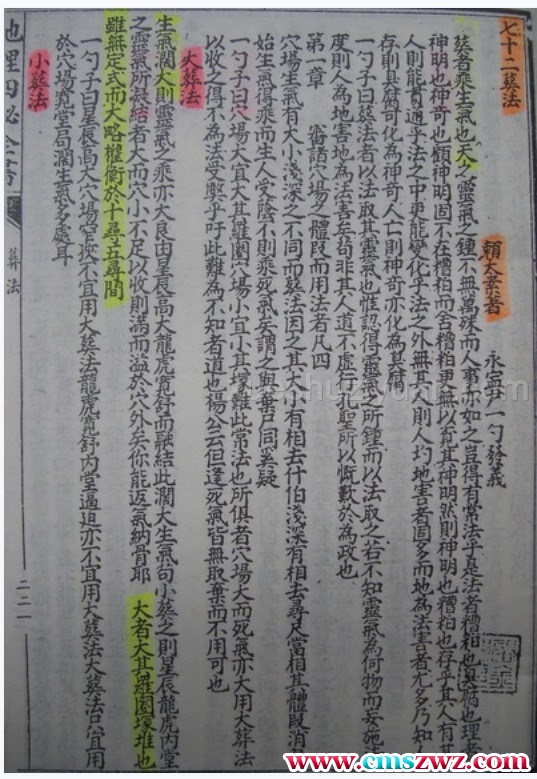 七十二葬法
賴太素著
永寧尹一勺發義
葬者乘生氣也天之靈氣之鍾不無萬殊而人事亦如之豈得有常法乎是法者糟粕也臭腐也理者
神明也神奇也顧神明固不在糟粕而舍糟粕更無以寛其神明然則神明也糟粕也存乎其人有其
人則能貫通乎法之中更能變化乎法之外無其人則人 地害者固多而地為法害者尤多乃知
存則臭腐可化為神奇人亡則神奇亦化為臭腐
一勺子曰葬法者以法取其靈氣也惟認得靈氣之所鍾而以法取之若不知靈氣為何物而妄施
度則人為地害地為法害矣茍非其人道不虛行孔聖所以慨歎於為政也
第一章 審諸穴場之體段而用法者凡四
穴場生氣有大小淺深之不同而葬法因之其大小有相去什伯淺深有相去尋尺當相其體段消
始生氣得乘而生人受蔭不則乘死氣矣謂之與棄尸同奚疑
一勺子曰穴場大宜大其羅圍穴場小宜小其塚難此常法也所俱者穴場大而死氣亦大用大葬法
以收之得不為法受愍乎吁此難為不知者道也楊公云但逢死氣皆無取棄而不用可也
大葬法
生氣濶大則靈氣之乘亦大良由星辰高大龍虎寬舒而融結此濶大生氣旬小葬之則星辰龍虎內堂
之靈氣所凝結者大而穴小不足以收則滿而溢於穴外矣你能返氣納骨耶 大者大其羅圍壞堆也
雖無定式而大略權衡於十尋五尋間
一勺子曰星辰高大穴場窄挾不宜用大葬法龍虎寬舒內堂逼迫亦不宜用大葬法大葬法只宜用
於穴場寬堂局濶生氣多處耳
小葬法
地理囚秘全書
葬法
二二一
www.cmszwz.com